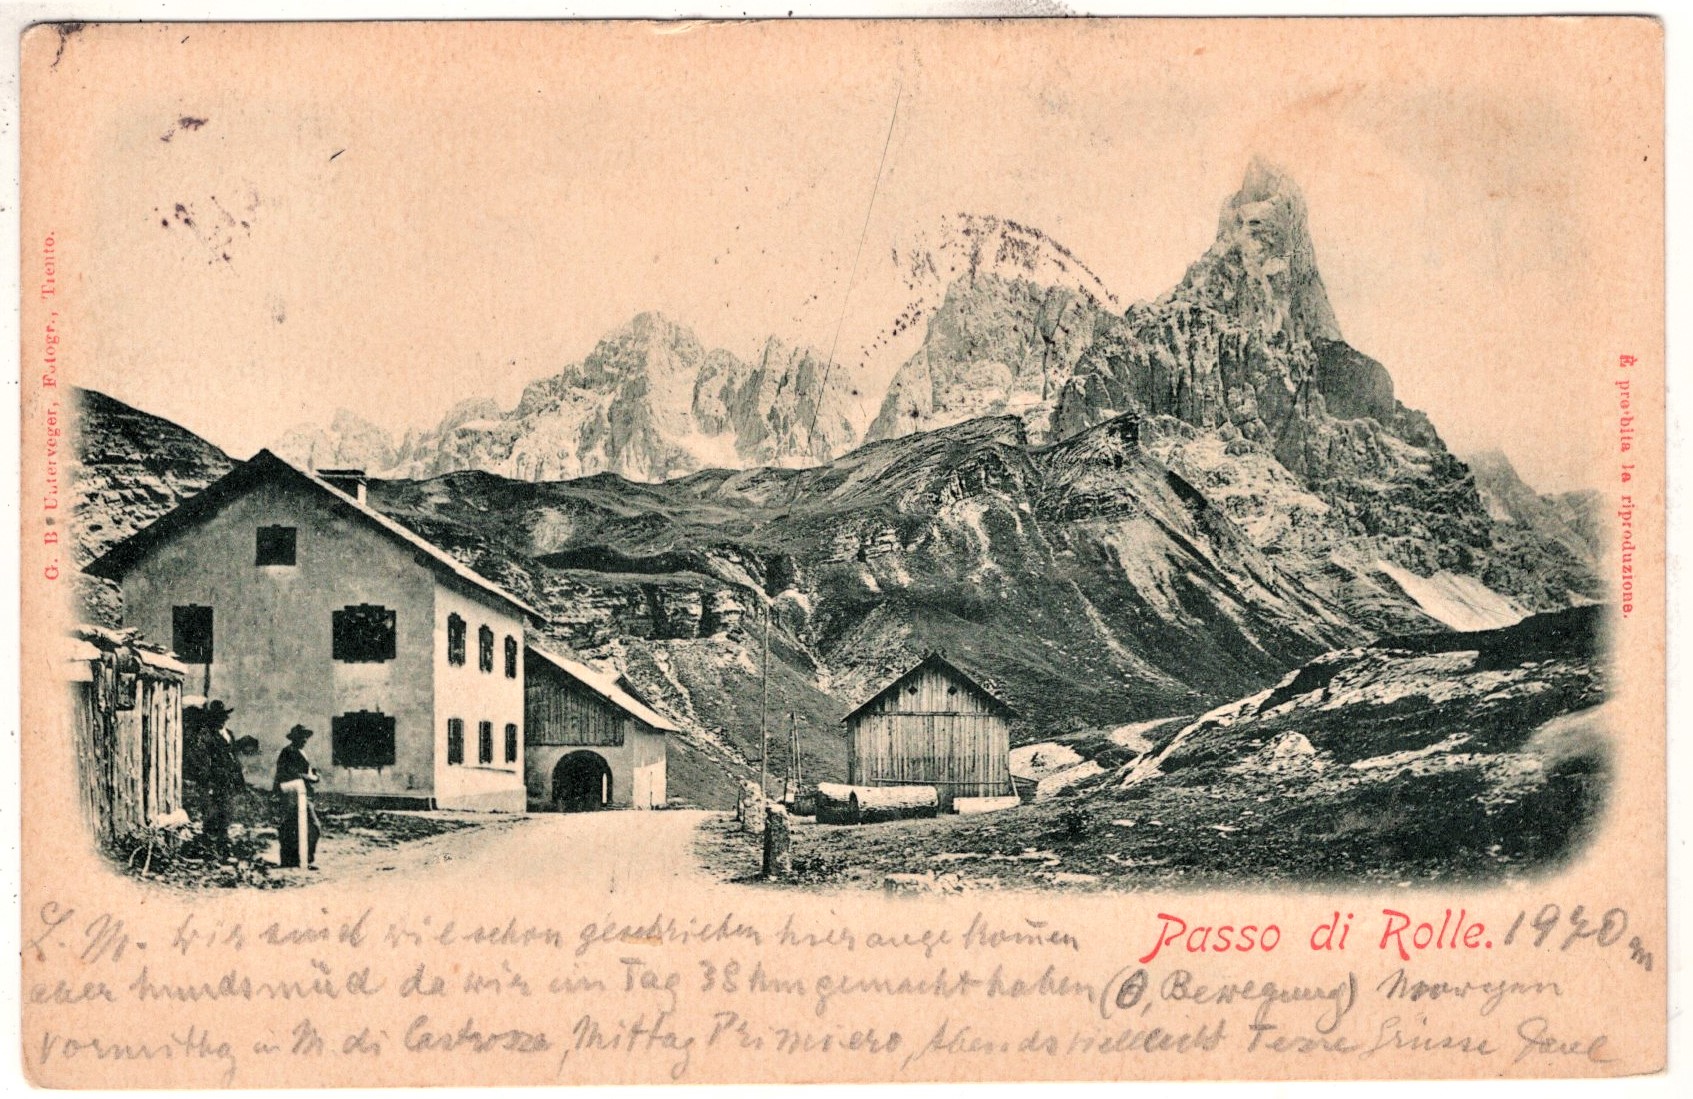 G. B. Unterveger, Fotogr., Trento.
È proibita la riproduzione.
Passo di Rolle. 1970 m
L. M. Wir sind wie schon geschrieben hier angekom̄en
aber hundsmüd da wir im Tag 38 km gemacht haben (O, Bewegung) Morgen
Vormittag in M. di Castrozza, Mittag Primiero, Abends vielleicht Grüsse Paul